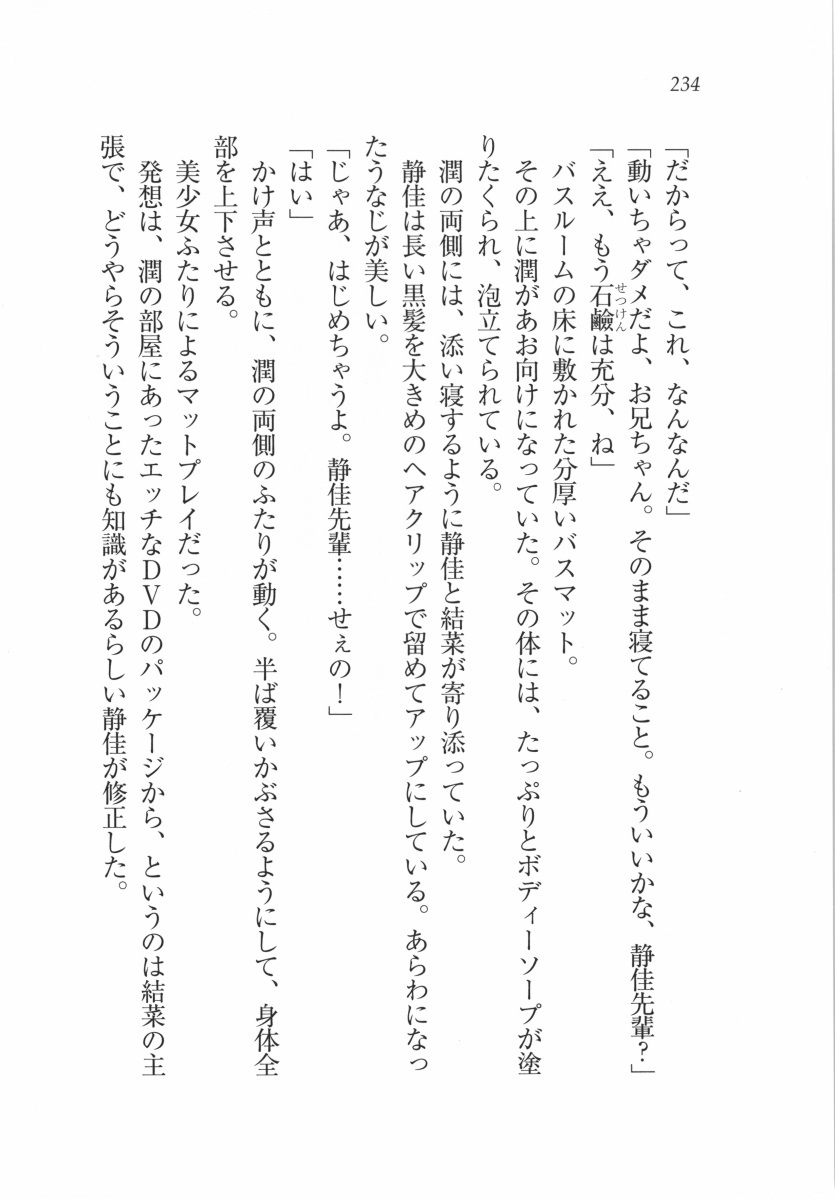 234
「だからって、これ、なんなんだ」
「動いちゃダメだよ、お兄ちゃん。そのまま寝てること。もういいかな、静佳先輩？」
「ええ、もう石鹼は充分、ね」
せっけん
バスルームの床に敷かれた分厚いバスマット。
その上に潤があお向けになっていた。その体には、たっぷりとボディーソープが塗
りたくられ、泡立てられている。
潤の両側には、添い寝するように静佳と結菜が寄り添っていた。
静佳は長い黒髪を大きめのヘアクリップで留めてアップにしている。あらわになっ
たうなじが美しい。
「じゃあ、はじめちゃうよ。静佳先輩……せぇの！」
「はい」
かけ声とともに、潤の両側のふたりが動く。半ば覆いかぶさるようにして、身体全
部を上下させる。
美少女ふたりによるマットプレイだった。
発想は、潤の部屋にあったエッチなＤＶＤのパッケージから、というのは結菜の主
張で、どうやらそういうことにも知識があるらしい静佳が修正した。